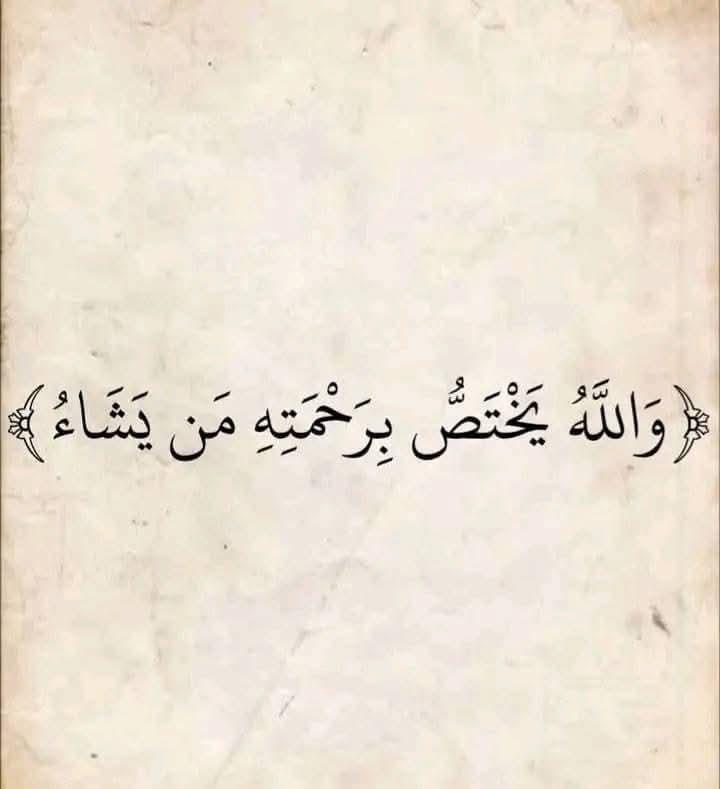 ﴿ وَاللَّهُ يَخْتَصُّ بِرَحْمَتِهِ مَن يَشَاءُ ﴾